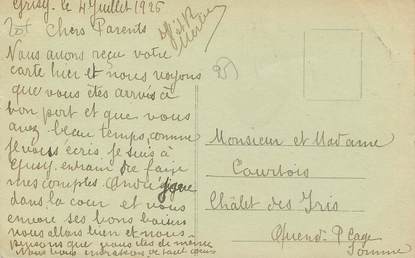 Grisy. le 4 Juillet 1926
Chers Parents
Nous avons reçu votre
carte hier et nous voyons
que vous êtes arrivés à
bon port et que vous
avez beau temps, comme
je vous ecris je suis à
Grisy. entrain de faire
mes comptes André joue
dans la cour et vous
envoie ses bons baisers
nous allons bien et nous
pensons que vous êtes de même
Nous vous embrassons de tout cœur
Monsieur et Madame
Courtois
Châlet des Iris
Quend-Plage
Somme